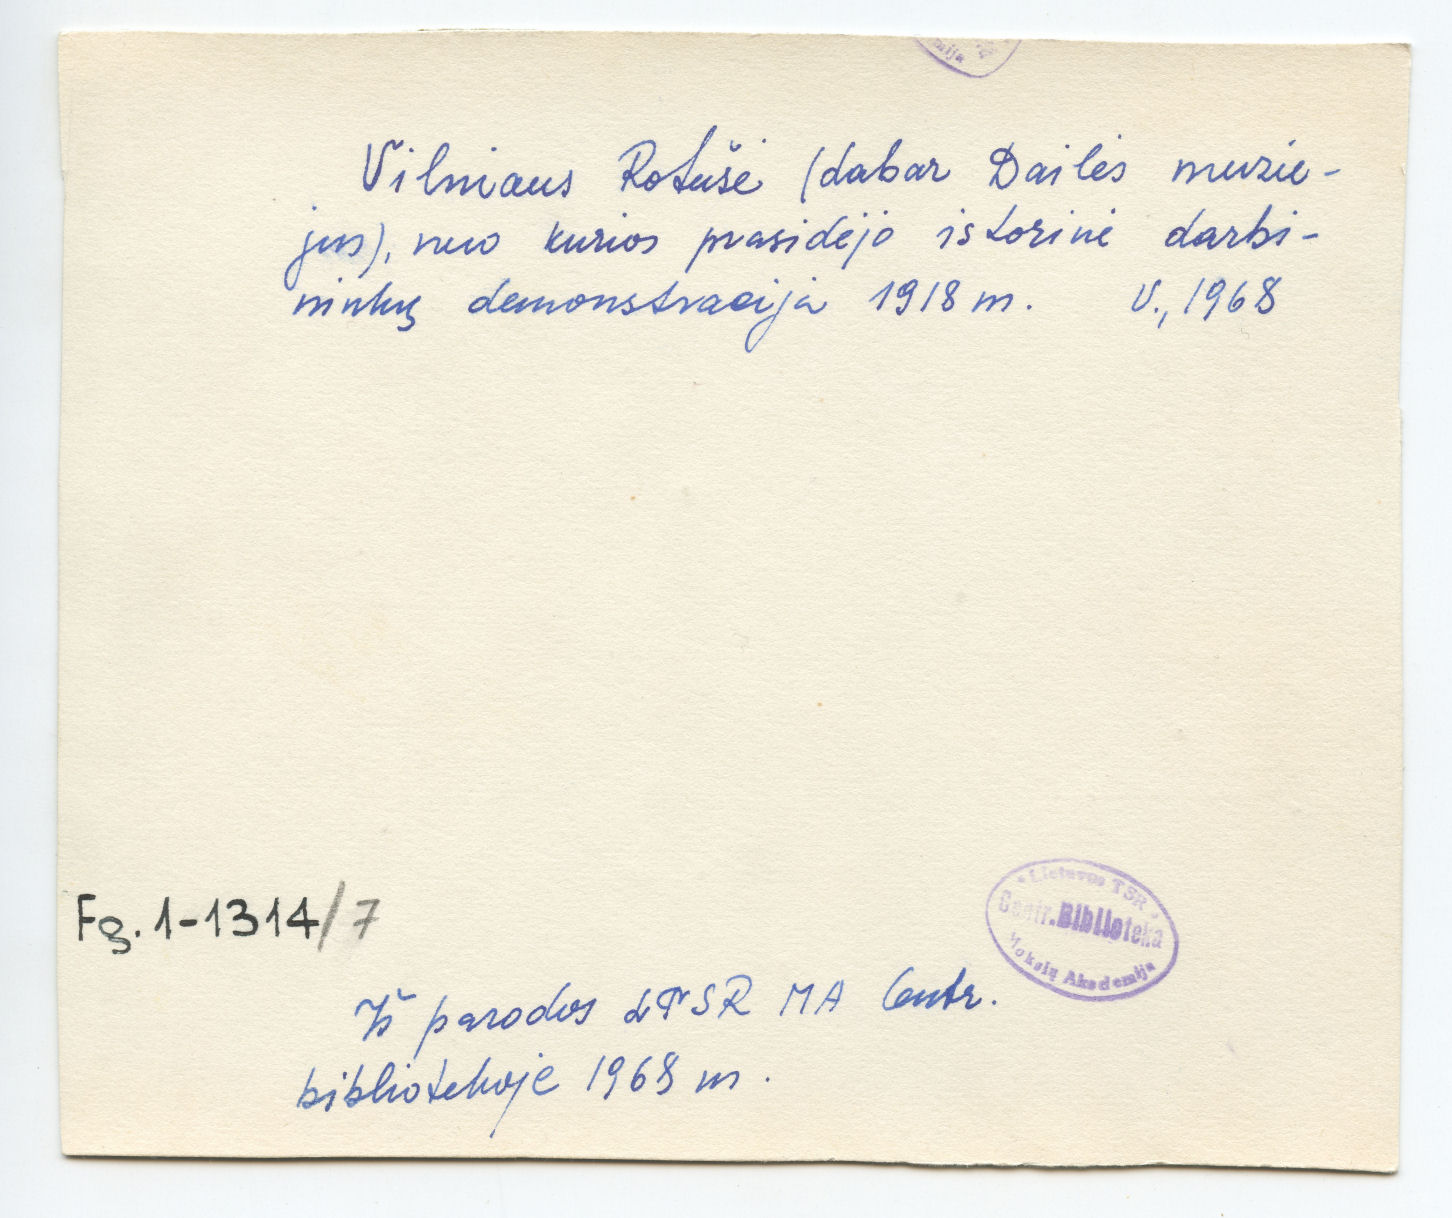 mija
Vilniaus Rotušė (dabar Dailės muzie-
jus), nuo kurios prasidėjo istorinė darbi-
ninkų demonstracija 1918 m. V., 1968
Fg. 1-1314/7
Lietuvos TSR
Centr. Biblioteka
Mokslų Akademija
Iš parodos LTSR MA Centr.
bibliotekoje 1968 m.